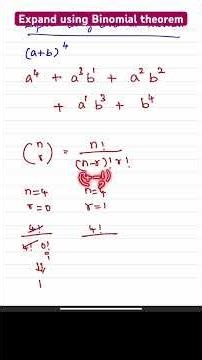 Expand using Binomial theorem
(a+b)⁴
a⁴ + a³b¹ + a²b²
+ a¹b³ + b⁴
(n r) = n! / (n-r)! r!
n=4 n=4
r=0 r=1
4! / 4! 0! 4! /
⇓
1